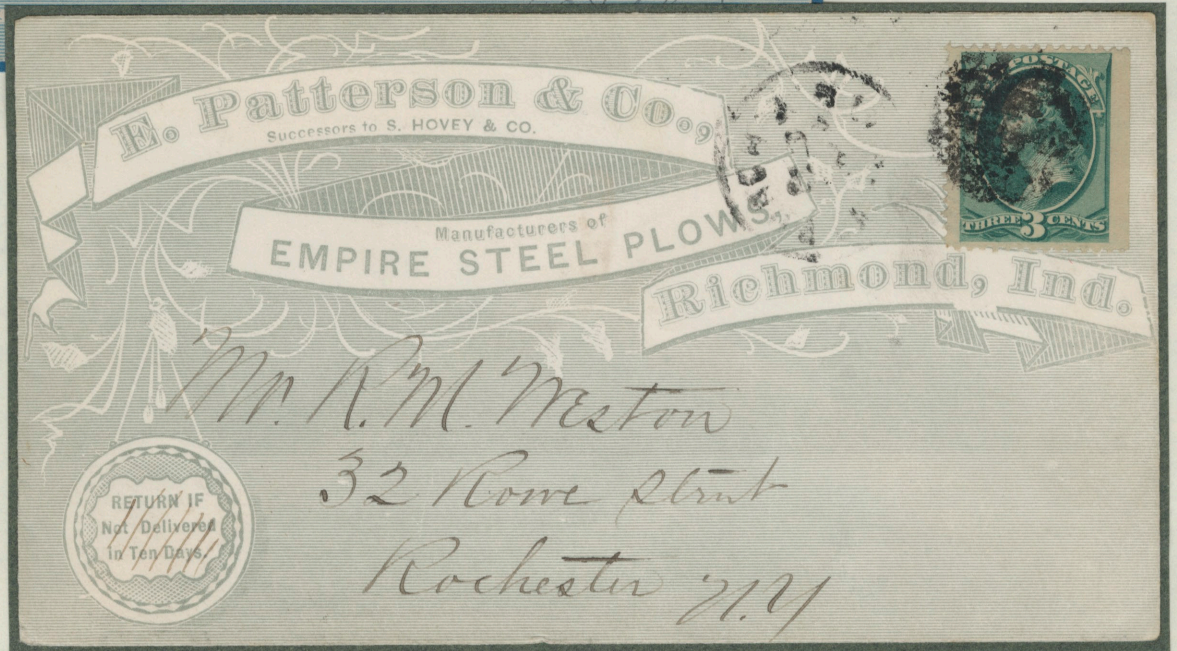 E. Patterson & Co.,
Successors to S. HOVEY & CO.
Manufacturers of
EMPIRE STEEL PLOWS,
Richmond, Ind.
POSTAGE
THREE 3 CENTS
Mr. R. M. Weston
32 Rowe Street
Rochester N.Y
RETURN IF
Not Delivered
in Ten Days.